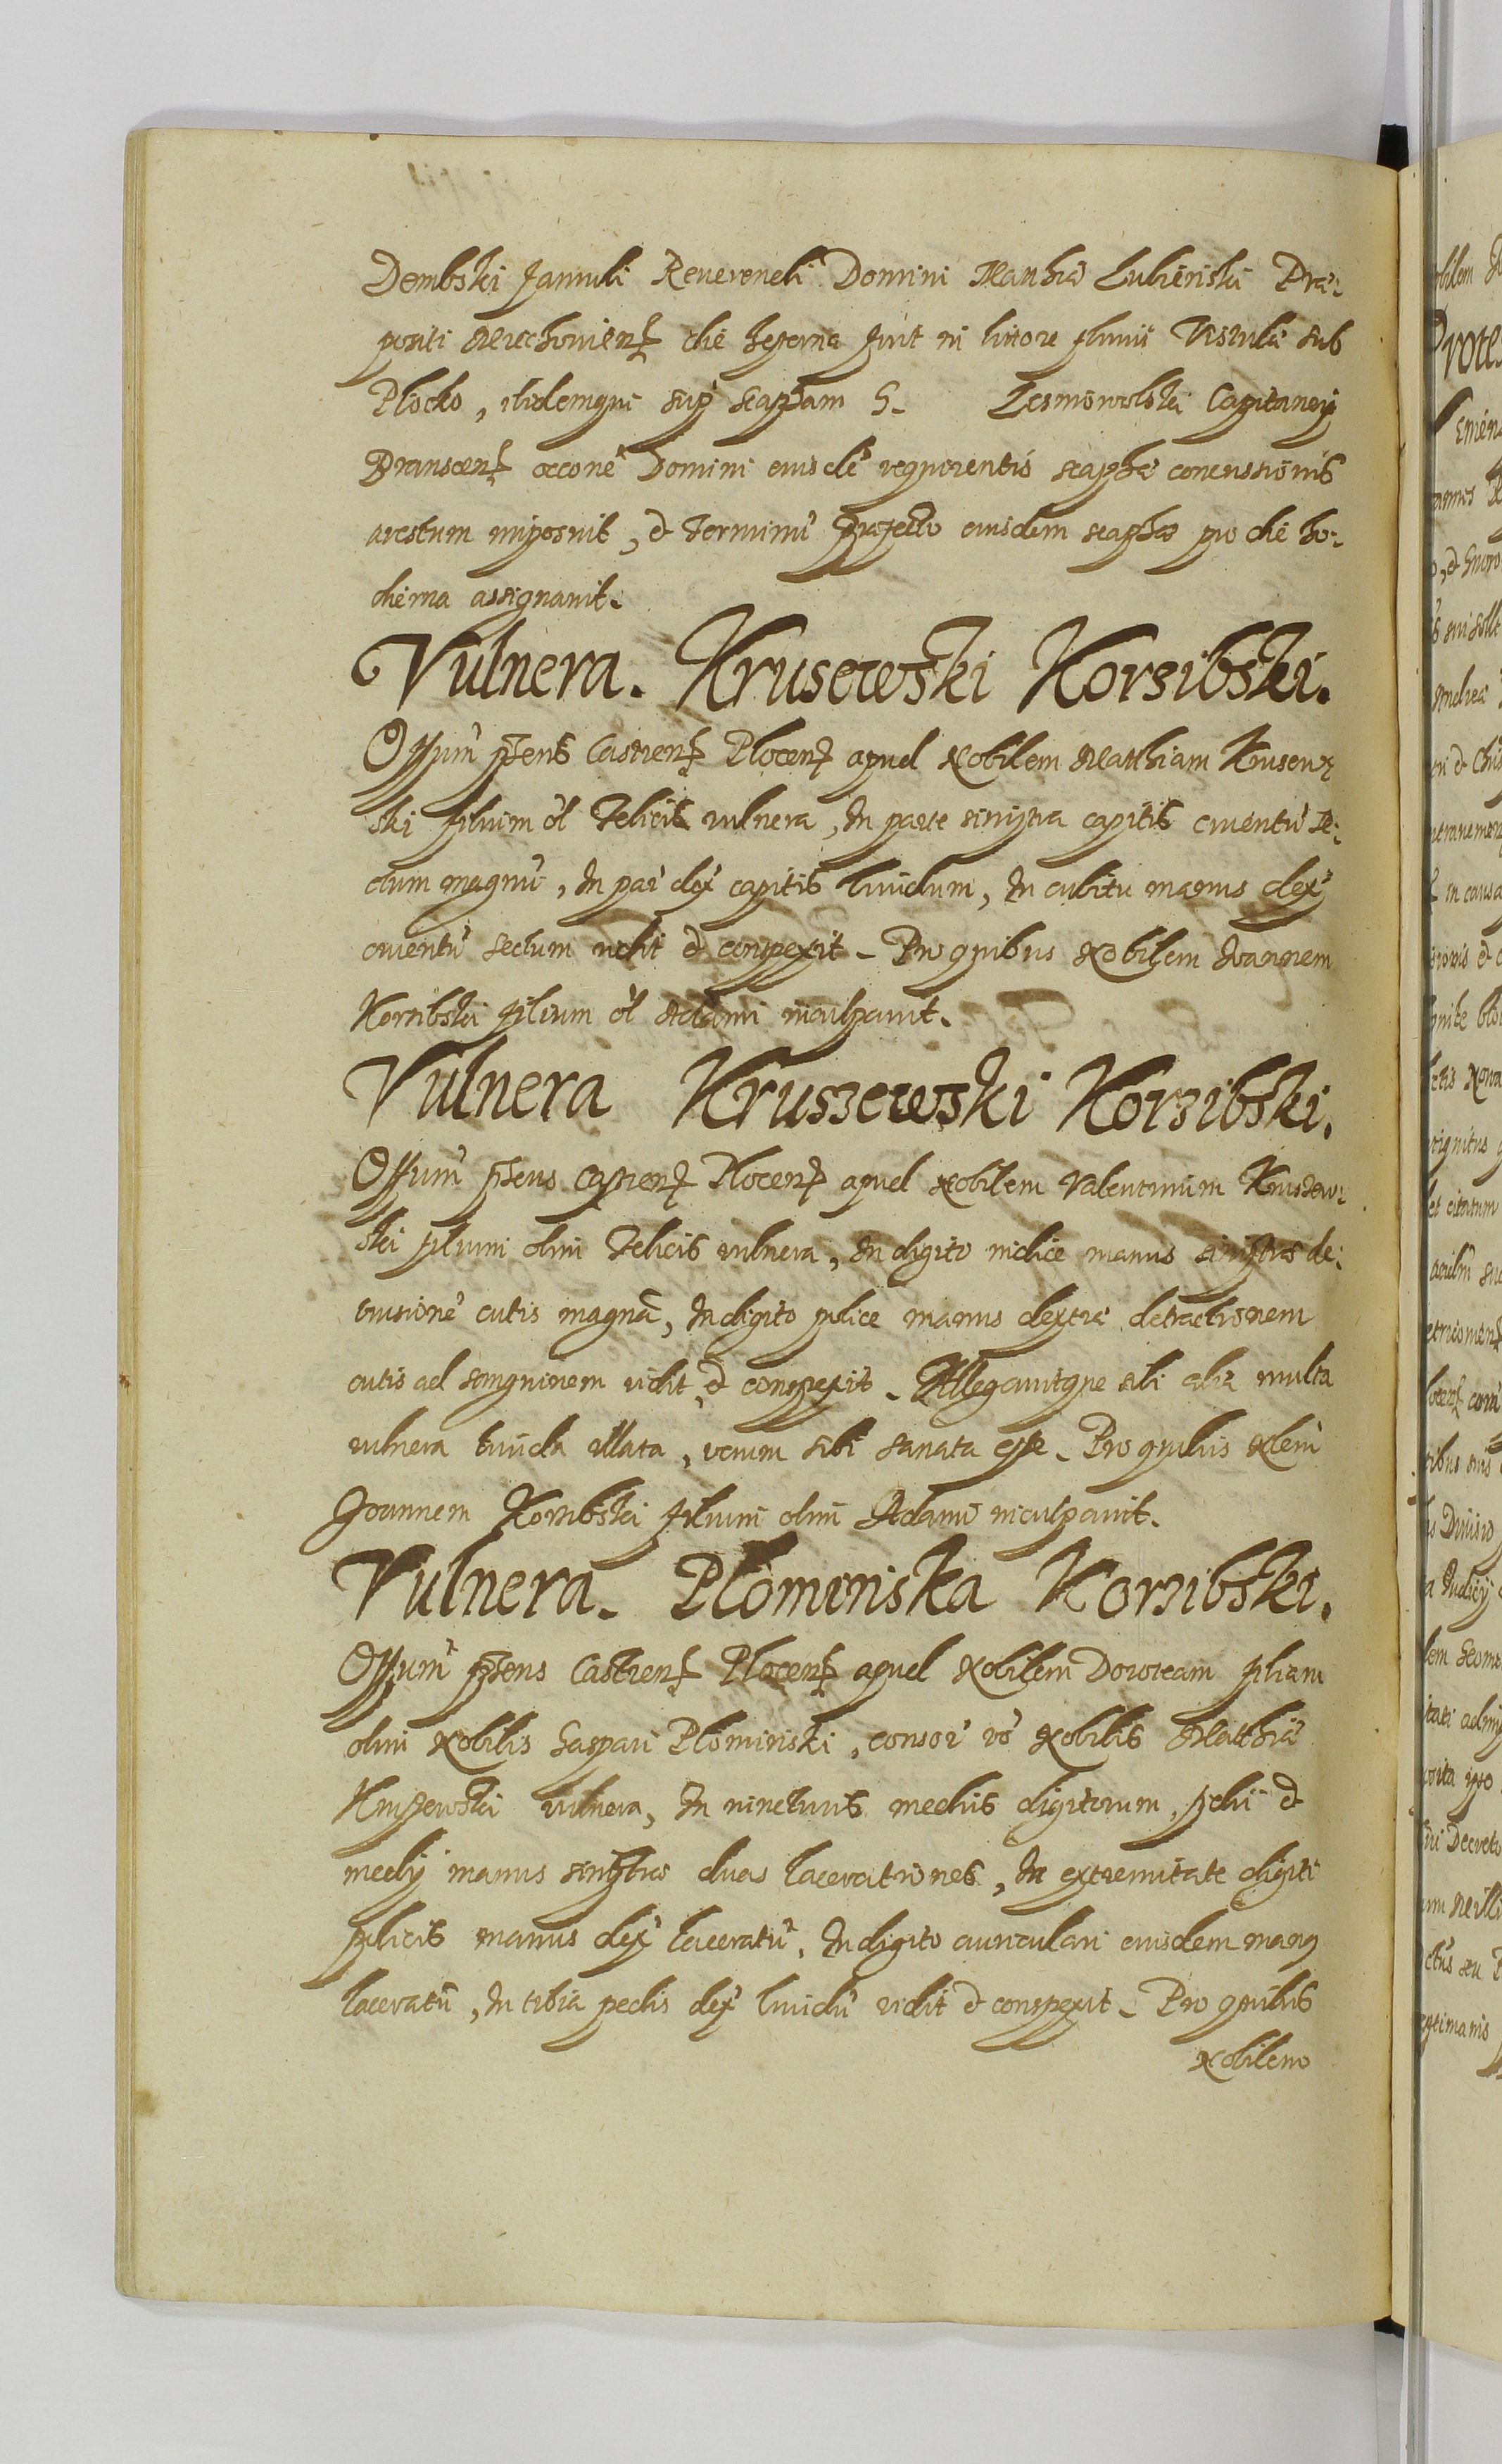 Dembski famuli Reverendi Domini Matthiæ Lubieński Præ-
positi Miechoviens die hesterna fuit in littore fluvii Vistulæ sub
Plocko, ibidemque sup scapham G. Lesniowolski Capitanei
Branscens occone Domini eiusde requirentis scaphæ concussionis
arestum imposuit, & terminu præfecto eiusdem scaphæ pro die ho-
dierna assignavit.
Vulnera. Krusewski Korzibski.
Offum pñens Castrens Plocens apud Nobilem Matthiam Krusew-
ski filium ol Felicis vulnera, In parte sinistra capitis cruentu se-
ctum magnu, In par dex capitis lividum, In cubitu manus dex
cruentu sectum vidit & conspexit. Pro quibus Nobilem Ioannem
Korzibski filium ol Adami inculpavit.
Vulnera Kruszewski Korzibski.
Offum pñens Castrens Plocens apud Nobilem Valentinum Kruszew-
ski filium olim Felicis vulnera, In digito indice manus sinistræ de-
cutis magna, In digito police manus dextræ detractionem
cutis ad sanguinem vidit & conspexit. Allegavitque sibi alia multa
vulnera livida illata, verum sibi sanata esse. Pro quibus Nlem
Joannem Korzibski filium olim Adami inculpavit.
Vulnera. Plominska Korzibski.
Offum pñens Castrens Plocens apud Nobilem Doroteam filiam
olim Nobilis Gaspari Plominski, consor vo Nobilis Matthiæ
Krusewski vulnera, In iuncturis mediis digitorum, &
medij manus sinistræ duas lacerationes, In extremitate digiti
pollicis manus dex laceratu, In digito auriculari eiusdem manus
laceratu, In tibia pedis dex lividu vidit & conspexit. Pro quibus
Nobilem